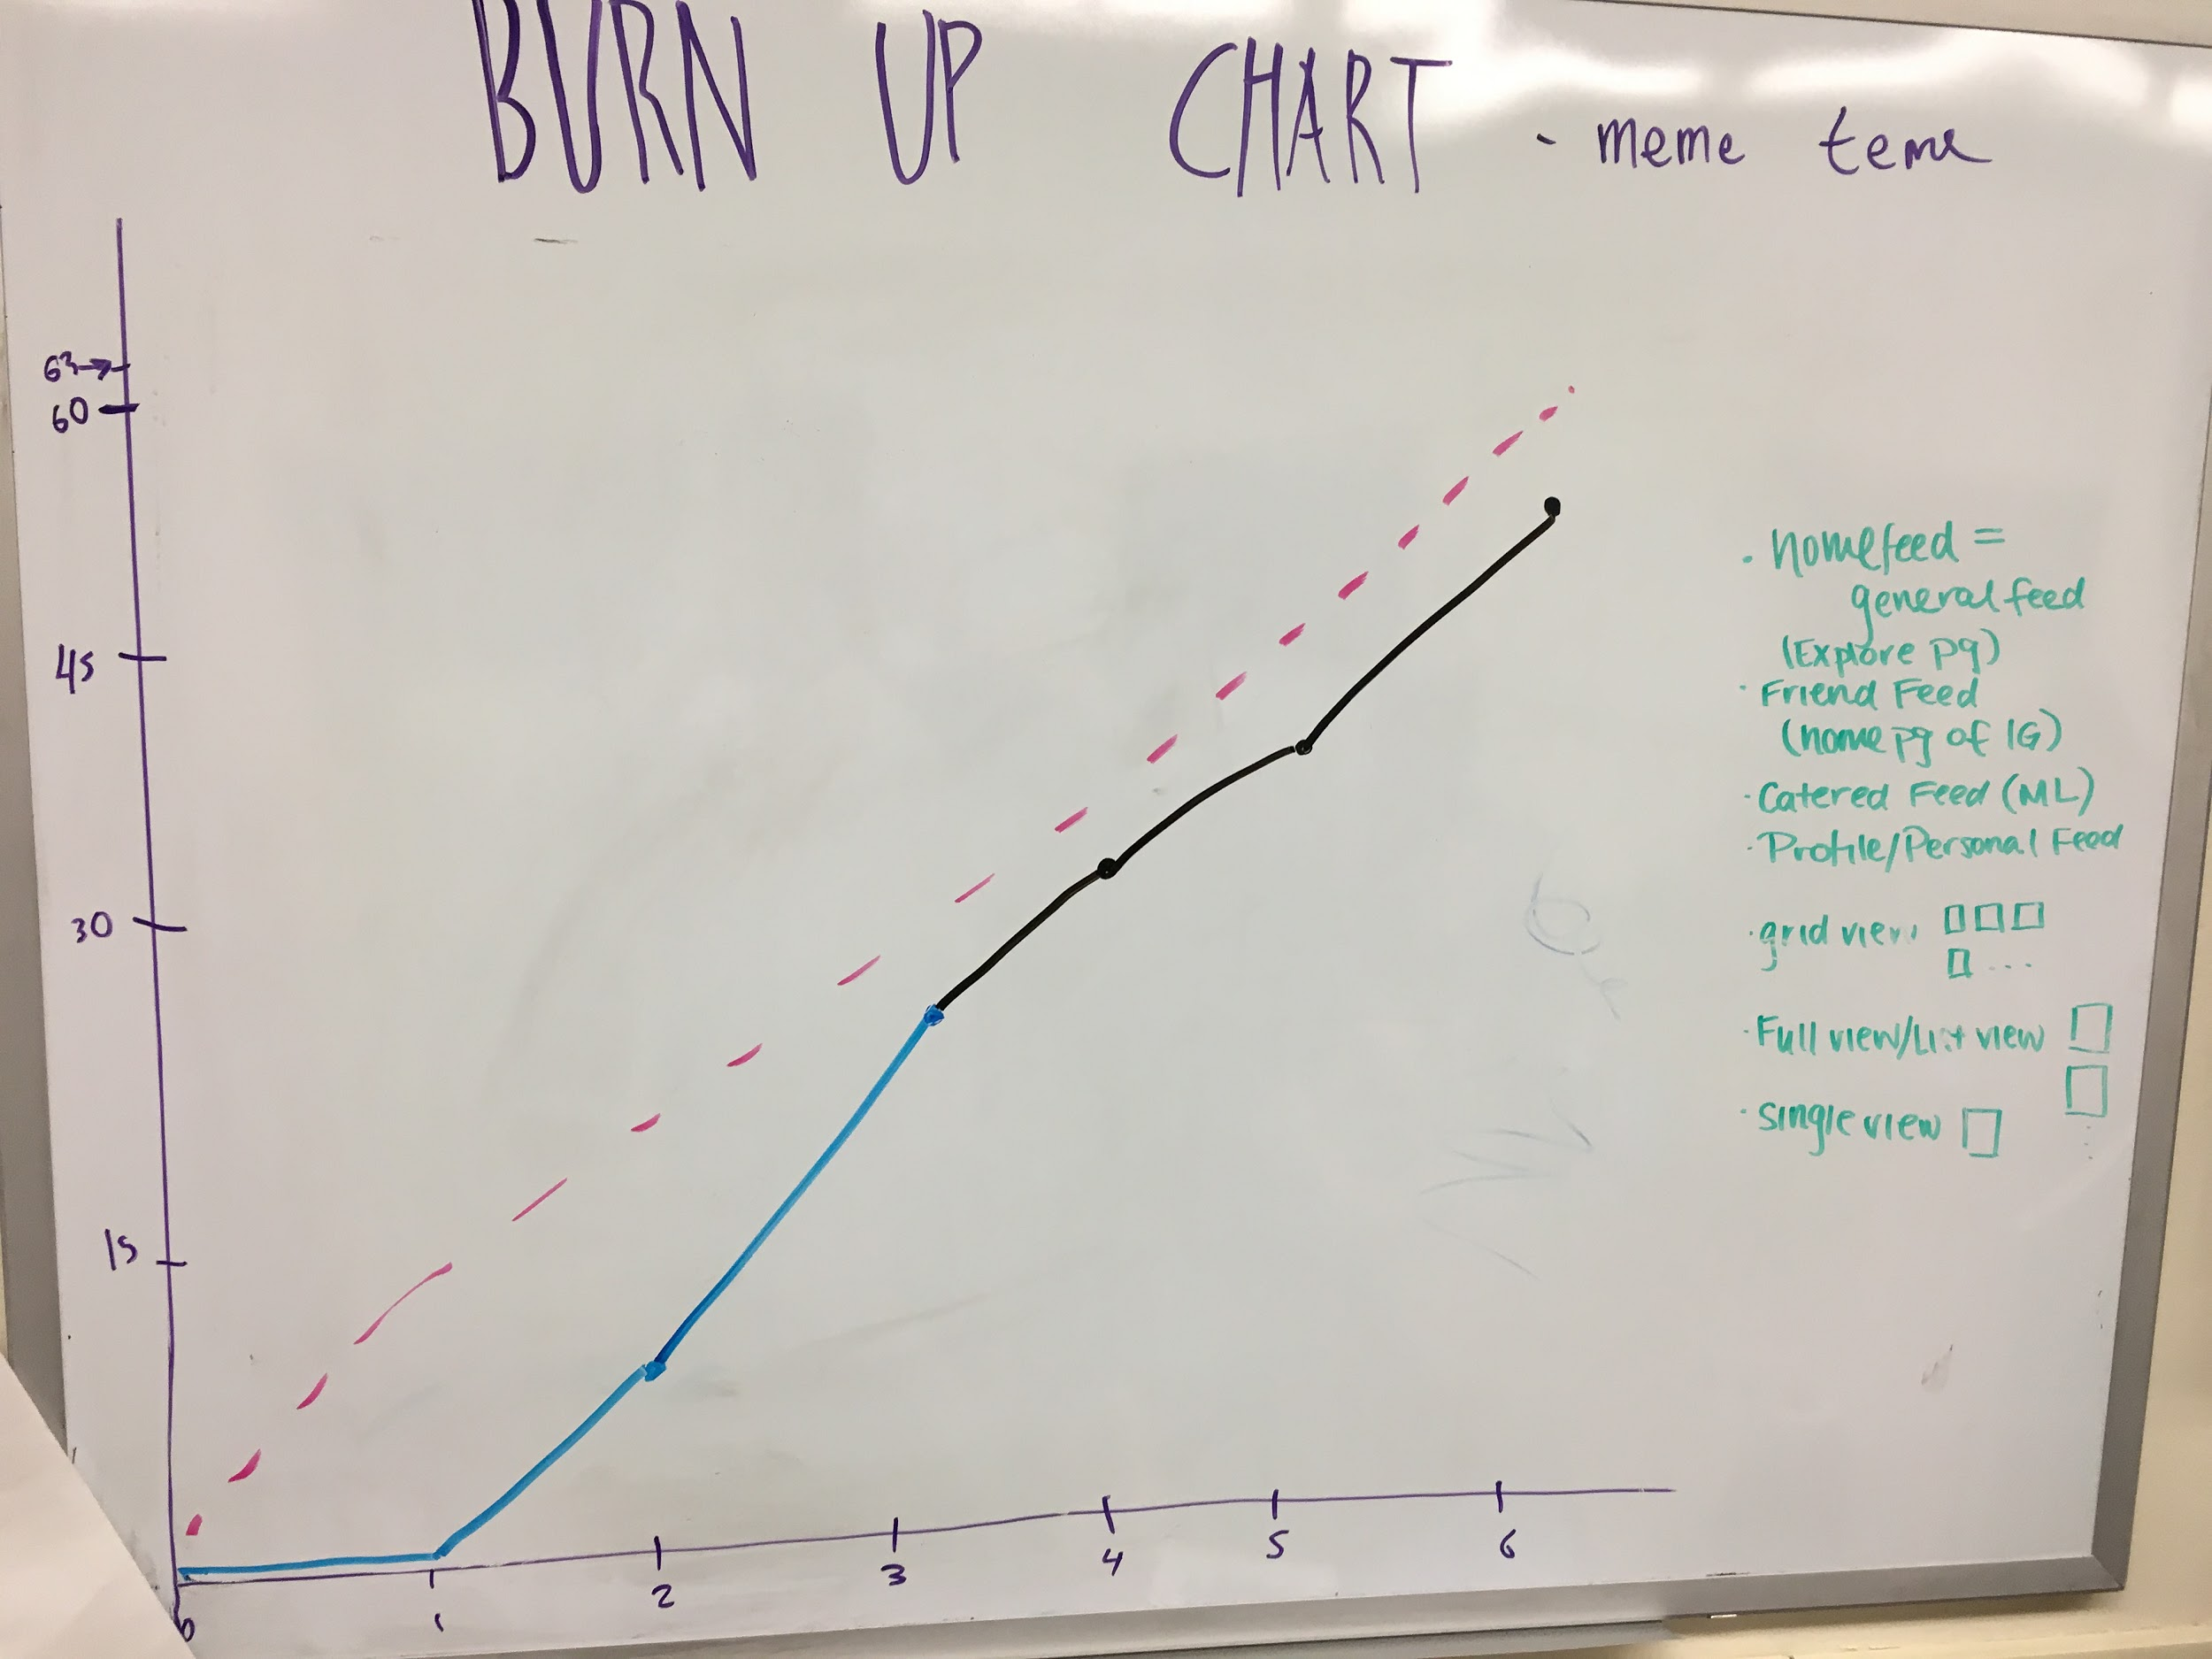 BURN UP CHART - meme teme
63→
60
45
30
15
0
1
2
3
4
5
6
· homefeed =
general feed
(Explore pg)
· Friend Feed
(home pg of IG)
· Catered Feed (ML)
· Profile/Personal Feed
· grid view
...
· Full view/List view
· single view